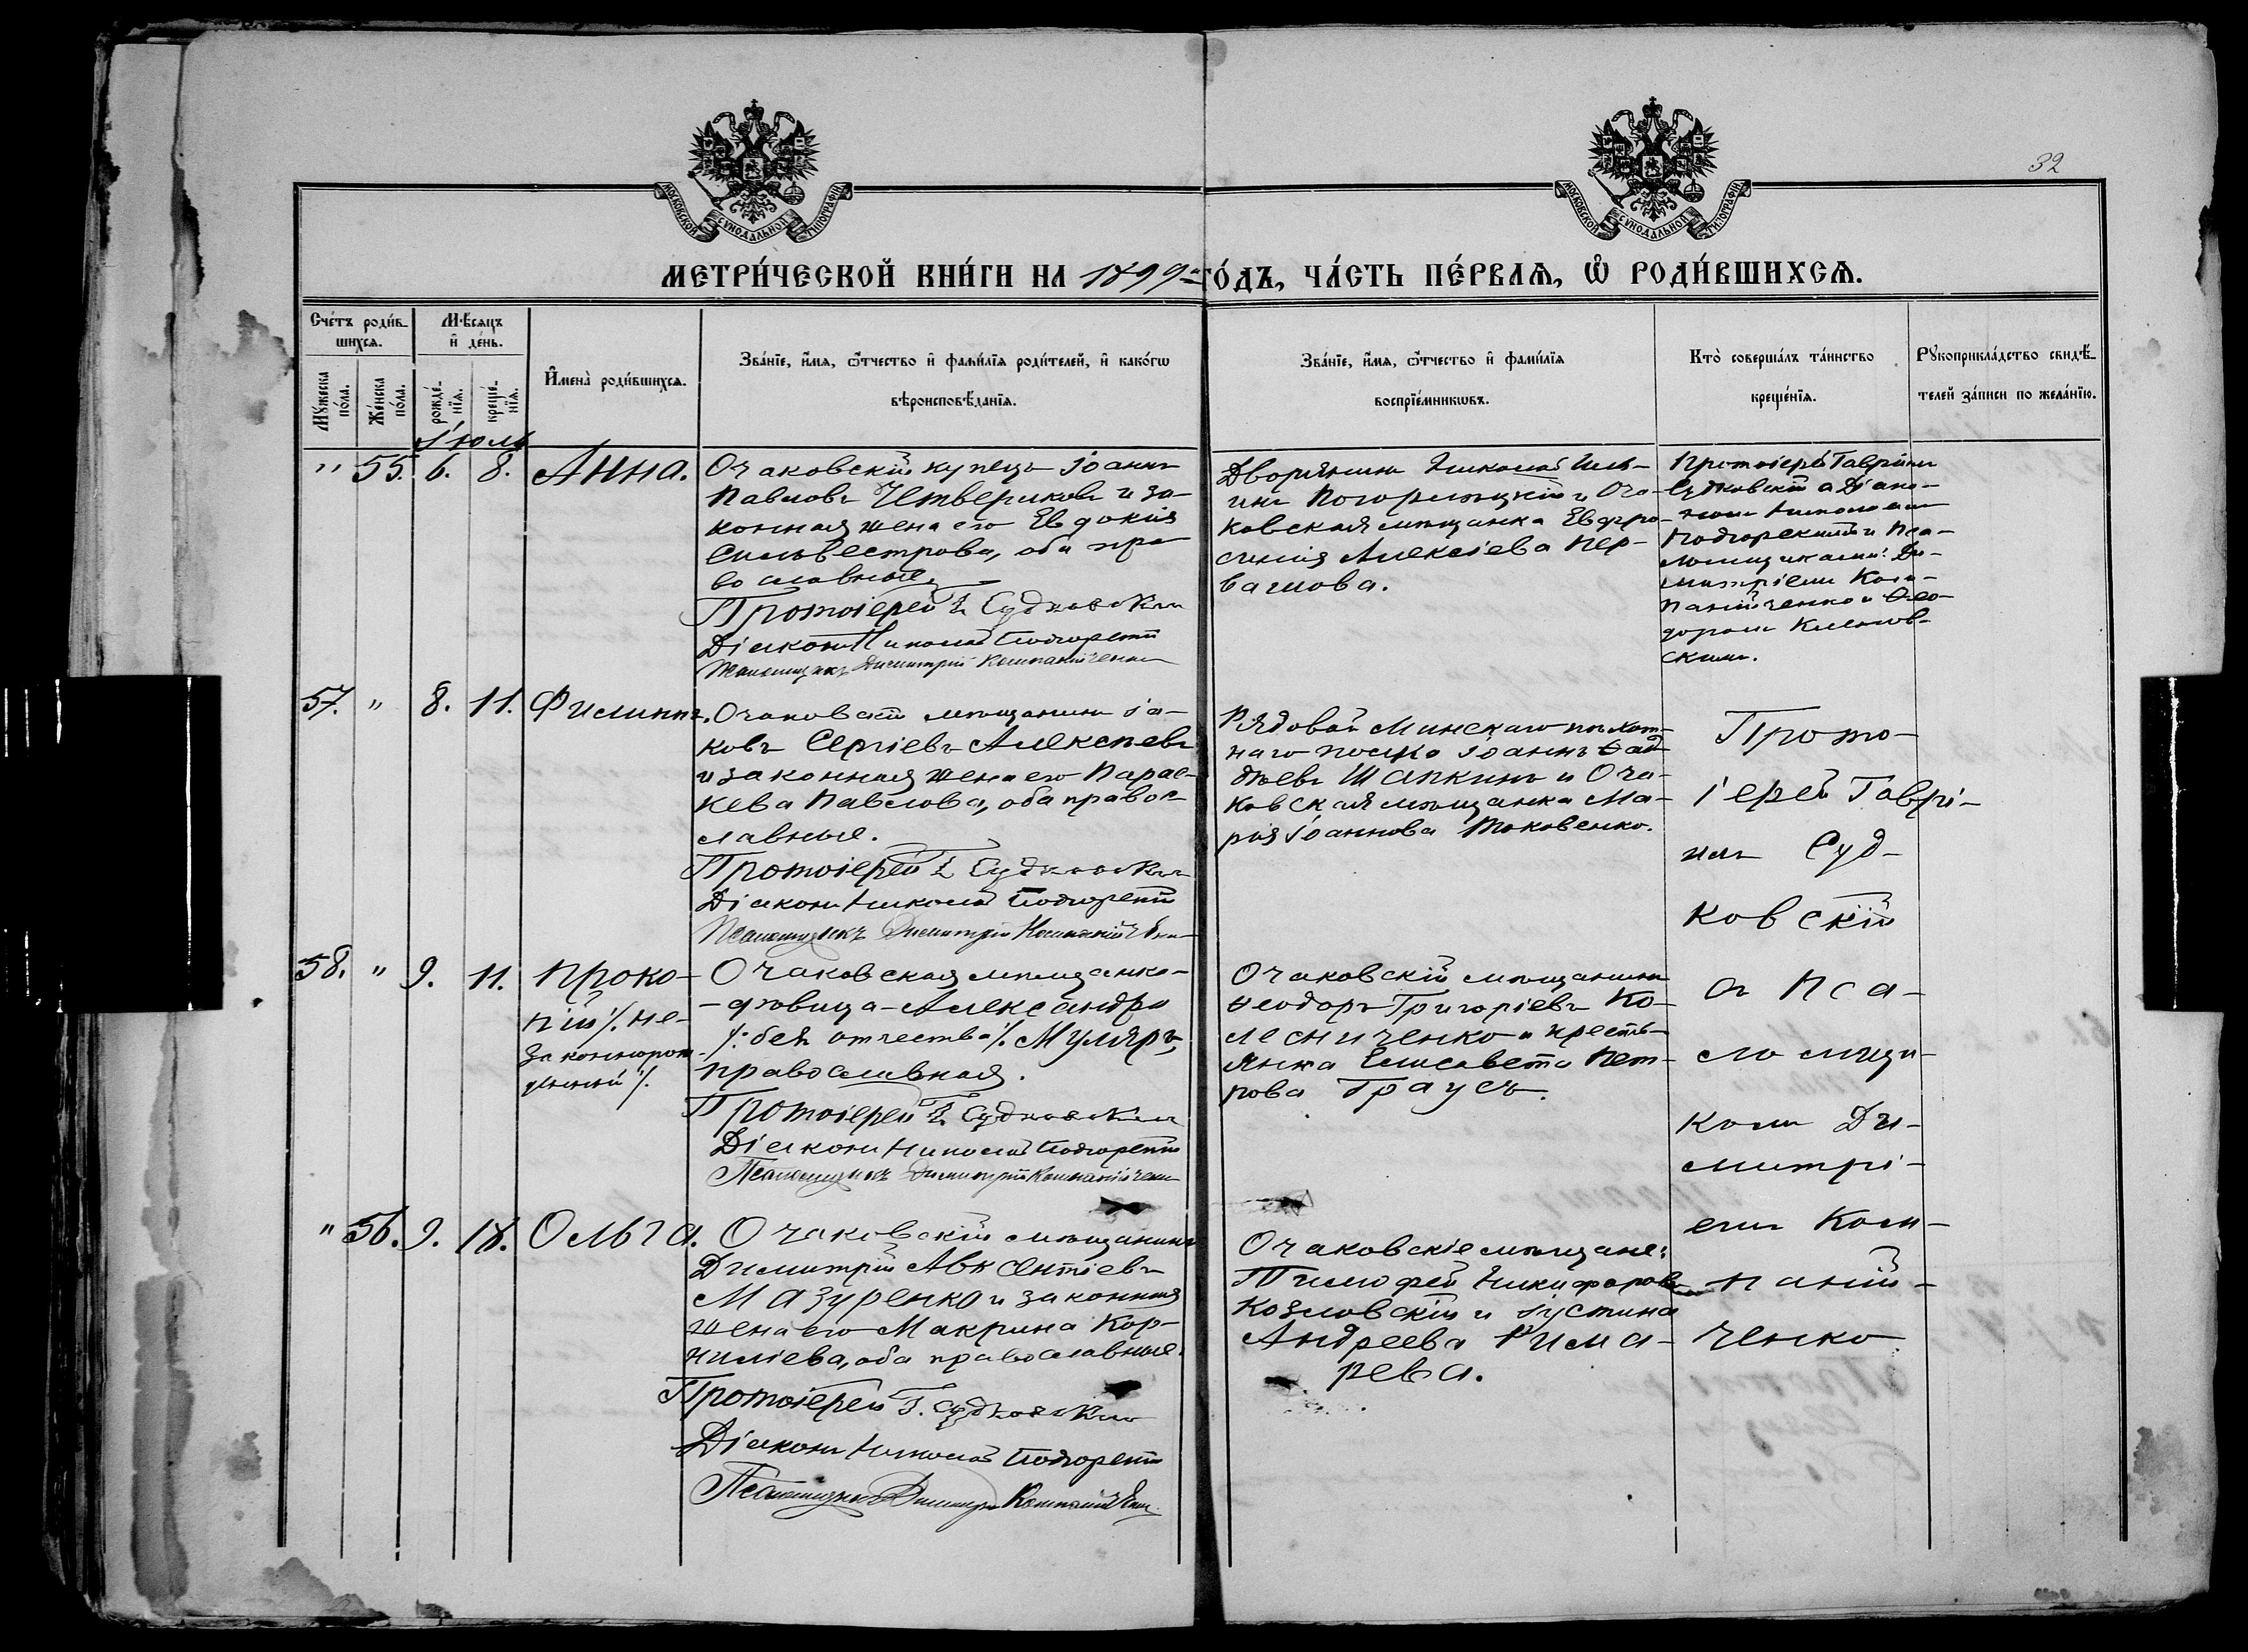 32
МОСКОВСКОЙ СѴНОДАЛЬНОЙ ТИПОГРАФІИ
МОСКОВСКОЙ СѴНОДАЛЬНОЙ ТИПОГРАФІИ
МЕТРИ́ЧЕСКОЙ КНИ́ГИ НА 1899 ГО́ДЪ, ЧА́СТЬ ПЕ́РВАЯ, Ѡ РОДИ́ВШИХСЯ.
Сче́тъ роди́в-
шихся.
Мѣ́сяцъ
и҆ де́нь.
Мꙋ́жеска
по́ла.
Же́нска
по́ла.
рожде́-
нїя.
креще́-
нїя.
И҆мена̀ роди́вшихся.
Зва́нїе, и҆́мя, ѻ҆́тчество и҆ фами́лїя роди́телей, и҆ како́гѡ
вѣроисповѣ́данїя.
Зва́нїе, и҆́мя, ѻ҆́тчество и҆ фами́лїя
воспрїе́мникѡвъ.
Кто̀ соверша́лъ та́инство
креще́нїя.
Рꙋкоприкла́дство свидѣ́-
телей за́писи по жела́нїю.
Іюль
" 55. 6. 8. Анна.
Очаковскій купецъ Іоаннъ
Павловъ Четвериковъ и за-
конная жена его Евдокія
Сильвестрова, оба пра-
вославные.
Протоіерей Г. Судковскій
Діаконъ Николай Подгорскій
Псаломщикъ Димитрій Компанійченко
Дворянинъ Николай Иль-
инъ Погорлецкій и Оча-
ковская мѣщанка Евфро-
синія Алексіева Пер-
вачова.
Протоіерей Гавріилъ
Судковскій съ Діако-
номъ Николаемъ
Подгорскимъ и Пса-
ломщиками: Ди-
митріемъ Ком-
панійченко и Ѳео-
доромъ
скимъ.
57. " 8. 11. Филиппъ.
Очаковскій мѣщанинъ Іа-
ковъ Сергіевъ Алексѣевъ
и законная жена его Парас-
кева Павлова, оба правос-
лавные.
Протоіерей Г. Судковскій
Діаконъ Николай Подгорскій
Псаломщикъ Димитрій Компанійченко
Рядовой Минскаго пѣхот-
наго полка Іоаннъ Ѳад-
дѣевъ Шапкинъ и Оча-
ковская мѣщанка Ма-
рія Іоаннова Маковенко.
Прото-
іерей Гаврі-
илъ Суд-
ковскій
съ Пса-
ломщи-
комъ Ди-
митрі-
емъ Ком-
паній-
ченко.
58. " 9. 11. Проко-
пій /. не-
законнорож-
денный /.
Очаковская мѣщанка-
-дѣвица-Александра
/: безъ отчества /. Муляръ,
православная.
Протоіерей Г. Судковскій
Діаконъ Николай Подгорскій
Псаломщикъ Димитрій Компанійченко
Очаковскій мѣщанинъ
Ѳеодоръ Григоріевъ Ко-
лесниченко и кресть-
янка Елисавета Пет-
рова Траусъ.
" 56. 9. 18. Ольга.
Очаковскій мѣщанинъ
Димитрій Авксентіевъ
Мазуренко и законная
жена его Макрина Кор-
ниліева, оба православные.
Протоіерей Г. Судковскій
Діаконъ Николай Подгорскій
Псаломщикъ Димитрій Компанійченко
Очаковскіе мѣщане:
Тимофей Никифоровъ
Козловскій и Іустина
Андреева Рима-
рева.